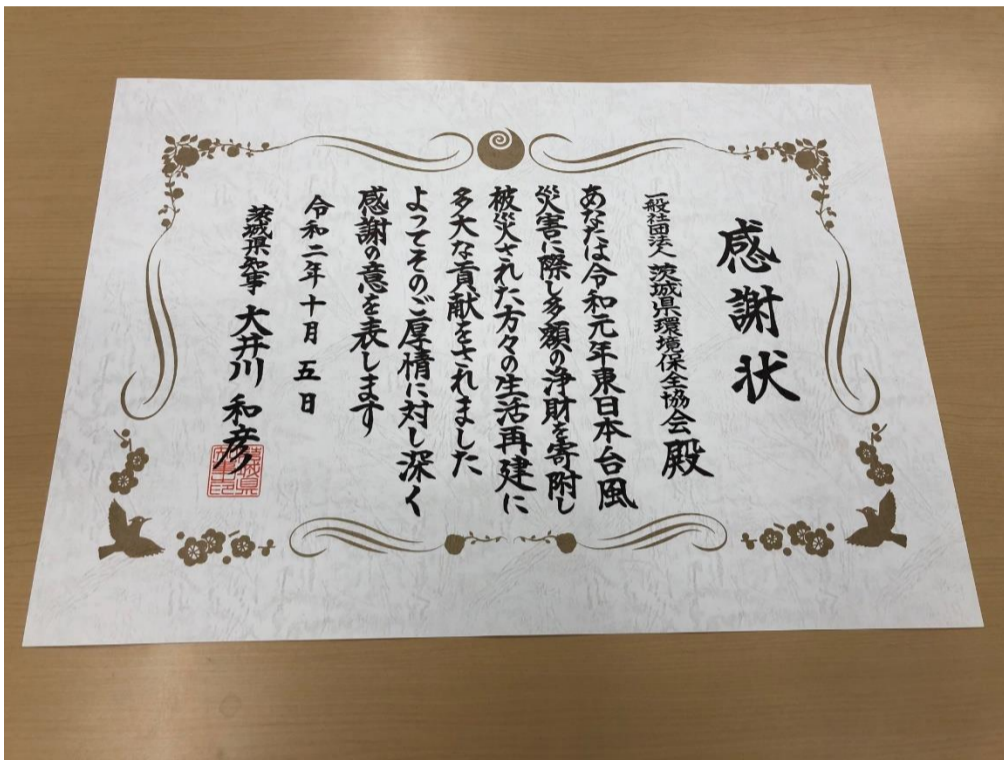 感謝状
一般社団法人 茨城県環境保全協会 殿
あなたは令和元年東日本台風
災害に際し多額の浄財を寄附し
被災された方々の生活再建に
多大な貢献をされました
よってそのご厚情に対し深く
感謝の意を表します
令和二年十月五日
茨城県知事 大井川 和彦